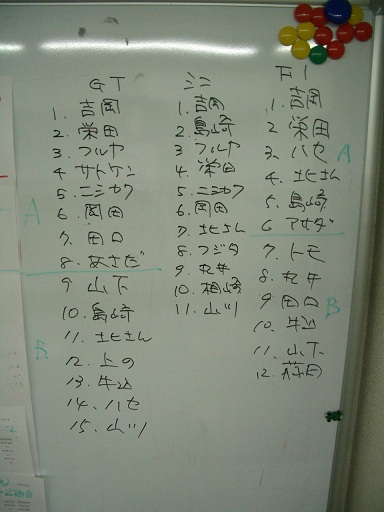 GT
1. 吉岡
2. 栄田
3 フルヤ
4 サトケン
5. ニシカワ
6. 岡田
7. 田口
8. あさだ
9 山下
10. 島崎
11. 土ヒさん
12. 上の
13. 牛込
14. ハセ
15. 山ツ
A
B
ミニ
1. 吉岡
2. 島崎
3 フルヤ
4. 栄田
5. ニシカワ
6. 岡田
7. 土ヒさん
8. フジタ
9. 丸井
10. 柏崎
11. 山ツ
F1
1. 吉岡
2 栄田
3. ハセ
4. 土ヒさん
5. 島崎
6 アサダ
7. トモ
8. 丸井
9 田口
10. 牛込
11. 山下
12.
A
B